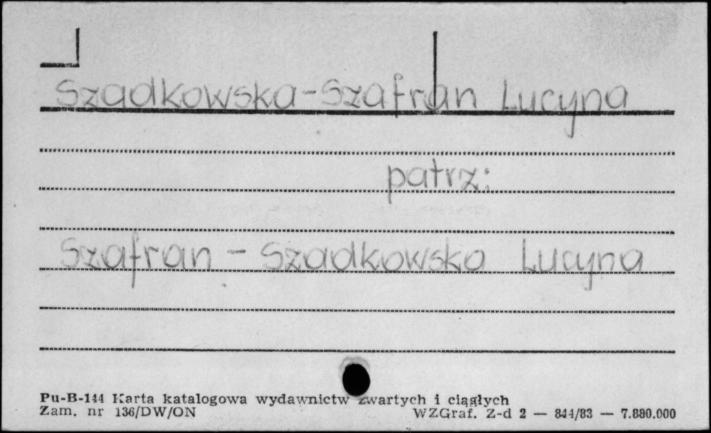 Szadkowska-Szafran Lucyna
patrz:
Szafran - Szadkowska Lucyna
Pu-B-144 Karta katalogowa wydawnictw zwartych i ciągłych
Zam. nr 136/DW/ON WZGraf. Z-d 2 — 844/83 — 7.880.000